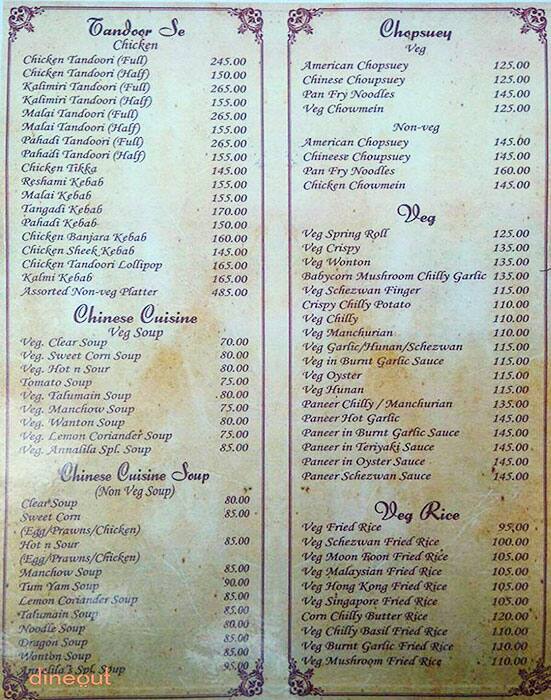 Tandoor Se
Chicken
Chicken Tandoori (Full) 245.00
Chicken Tandoori (Half) 150.00
Kalimiri Tandoori (Full) 265.00
Kalimiri Tandoori (Half) 155.00
Malai Tandoori (Full) 265.00
Malai Tandoori (Half) 155.00
Pahadi Tandoori (Full) 265.00
Pahadi Tandoori (Half) 155.00
Chicken Tikka 145.00
Reshami Kebab 155.00
Malai Kebab 155.00
Tangadi Kebab 170.00
Pahadi Kebab 150.00
Chicken Banjara Kebab 160.00
Chicken Sheek Kebab 145.00
Chicken Tandoori Lollipop 165.00
Kalmi Kebab 165.00
Assorted Non-veg Platter 485.00
Chinese Cuisine
Veg Soup
Veg. Clear Soup 70.00
Veg. Sweet Corn Soup 80.00
Veg. Hot n Sour 80.00
Tomato Soup 75.00
Veg. Talumain Soup 80.00
Veg. Manchow Soup 75.00
Veg. Wanton Soup 80.00
Veg. Lemon Coriander Soup 75.00
Veg. Annalila Spl. Soup 85.00
Chinese Cuisine Soup
(Non Veg Soup)
Clear Soup 80.00
Sweet Corn 85.00
(Egg/Prawns/Chicken)
Hot n Sour 85.00
(Egg/Prawns/Chicken)
Manchow Soup 85.00
Tum Yam Soup 90.00
Lemon Coriander Soup 85.00
Talumain Soup 85.00
Noodle Soup 80.00
Dragon Soup 85.00
Wonton Soup 85.00
Annelila's Spl. Soup 95.00
dineout
Chopsuey
Veg
American Chopsey 125.00
Chinese Choupsuey 125.00
Pan Fry Noodles 145.00
Veg Chowmein 125.00
Non-veg
American Chopsuey 145.00
Chineese Choupsuey 145.00
Pan Fry Noodles 160.00
Chicken Chowmein 145.00
Veg
Veg Spring Roll 125.00
Veg Crispy 135.00
Veg Wonton 135.00
Babycorn Mushroom Chilly Garlic 135.00
Veg Schezwan Finger 115.00
Crispy Chilly Potato 110.00
Veg Chilly 110.00
Veg Manchurian 110.00
Veg Garlic/Hunan/Schezwan 115.00
Veg in Burnt Garlic Sauce 115.00
Veg Oyster 115.00
Veg Hunan 115.00
Paneer Chilly / Manchurian 135.00
Paneer Hot Garlic 145.00
Paneer in Burnt Garlic Sauce 145.00
Paneer in Teriyaki Sauce 145.00
Paneer in Oyster Sauce 145.00
Paneer Schezwan Sauce 145.00
Veg Rice
Veg Fried Rice 95.00
Veg Schezwan Fried Rice 100.00
Veg Moon Toon Fried Rice 105.00
Veg Malaysian Fried Rice 105.00
Veg Hong Kong Fried Rice 105.00
Veg Singapore Fried Rice 105.00
Corn Chilly Butter Rice 120.00
Veg Chilly Basil Fried Rice 110.00
Veg Burnt Garlic Fried Rice 110.00
Veg Mushroom Fried Rice 110.00